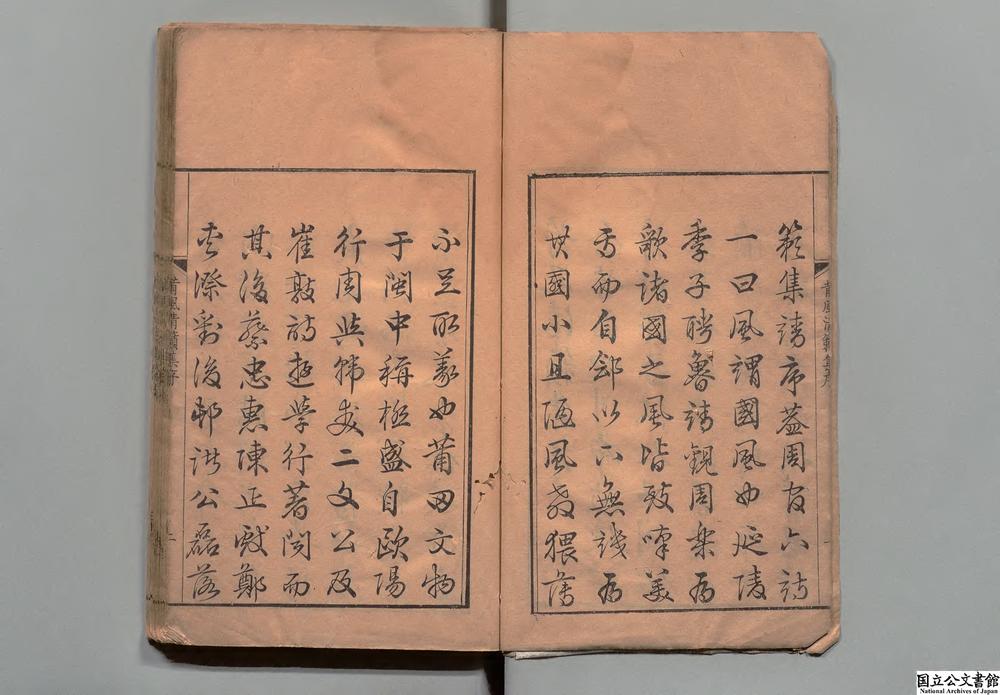 籁集請序葢周官六詩
一曰風謂國風也延陵
季子聘魯請觀周樂爲
歌諸國之風皆致嘆美
焉而自鄶以下無譏爲
其國小且陋風教猥薄
不足取義也莆田文物
于閩中稱極盛自歐陽
行周與韓友二文公及
崔敦詩遊學行著閩而
其後蔡忠惠陳正獻鄭
夾漈劉後邨諸公磊落
莆風清籟集序
国立公文書館
National Archives of Japan